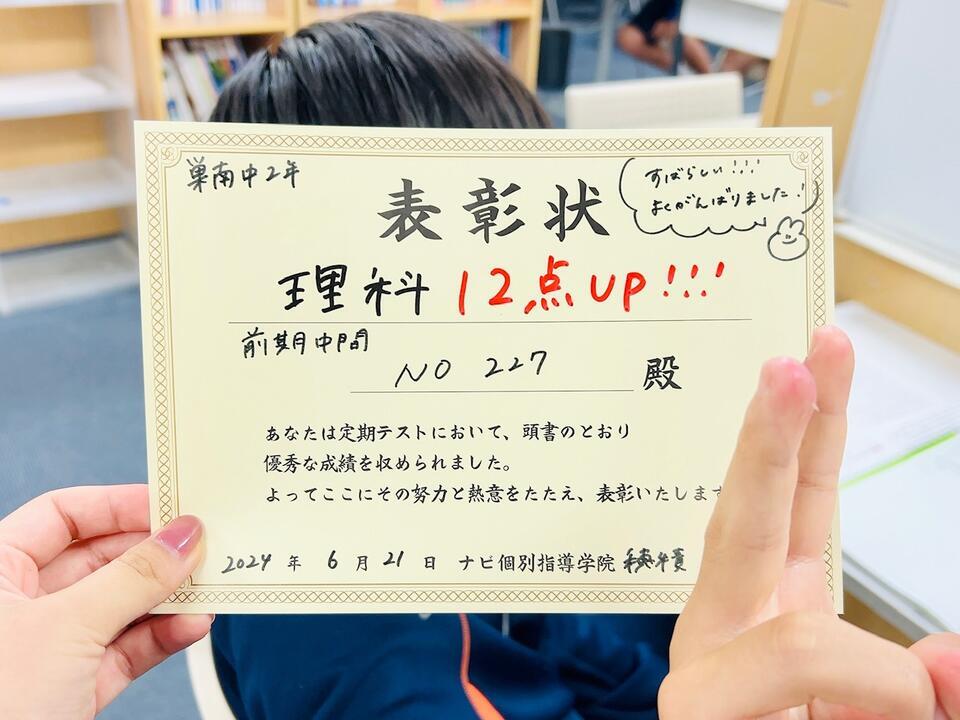 巣南中2年
表彰状
すばらしい!!!
よくがんばりました!
理科 12点UP!!!
前期中間
NO 227 殿
あなたは定期テストにおいて、頭書のとおり
優秀な成績を収められました。
よってここにその努力と熱意をたたえ、表彰いたします
2024 年 6 月 21 日 ナビ個別指導学院 穂積